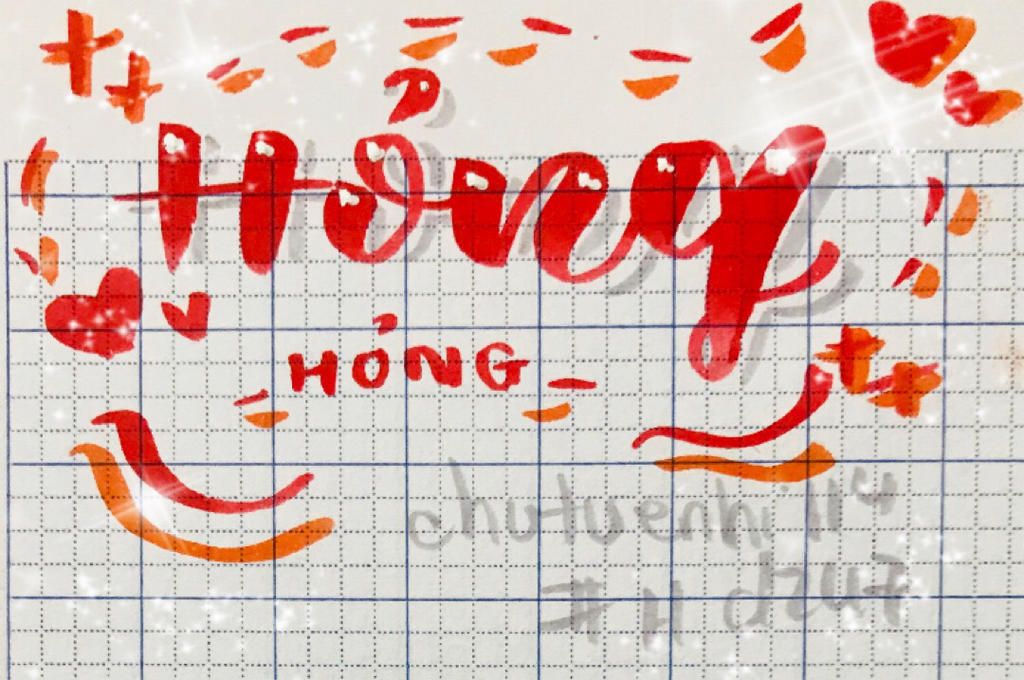 Hỏng
HỎNG
chutuenhi114